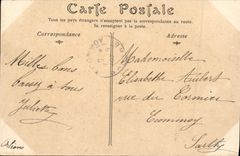 Carte Postale
Tous les pays étrangers n'acceptent pas la correspondance au recto.
Se renseigner à la poste.
Correspondance
Adresse
Mademoiselle
Milles bons
Elisabeth
baisers à tous
rue du Cormier
Juliette
Sarthe